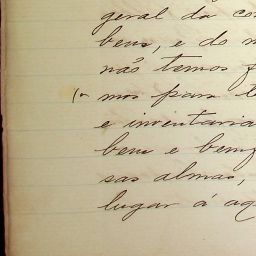 geral da co
bens, e do m
não temos f
mos para l
e inventaria
bens e bemf
sas almas,
lugar á aq